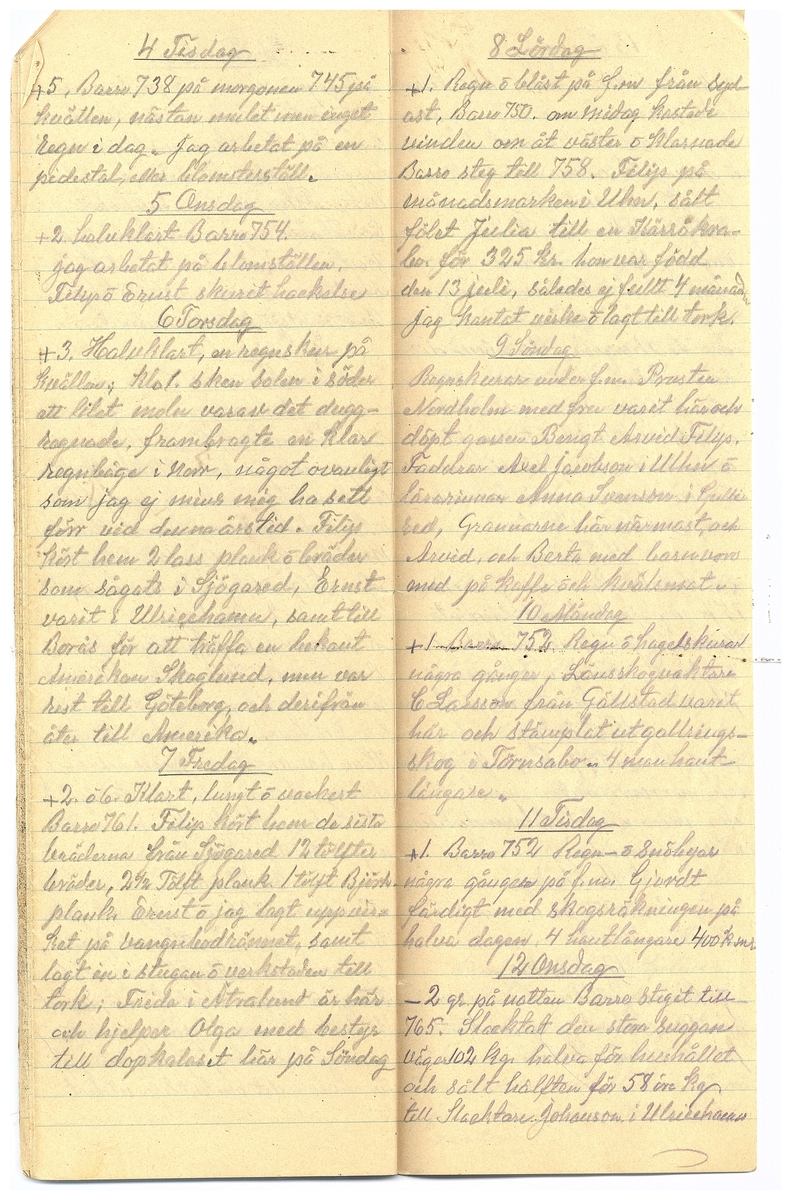 4 Tisdag
+5, Barro 738 på morgonen 745 på
kvällen, nästan mulet men inget
regn i dag. Jag arbetat på en
pidestal, eller blomsterställ.
5 Onsdag
+2. halvklart Barro 754.
jag arbetat på blomställen,
Filip o Ernst skurit hackelse
6 Torsdag
+3. Halvklart, en regnskur på
kvällen; klo 1. sken solen i söder
ett litet moln varav det dugg-
regnade, frambragte en klar
regnbåge i norr, något ovanligt
som jag ej mins mig ha sett
förr vid denna årstid. Filip
kört hem 2 lass plank o bräder
som sågats i Sjögared, Ernst
varit i Ulricehamn, samt till
Borås för att träffa en bekant
Amerikan Skoglund, men var
rest till Göteborg, och derifrån
åter till Amerika.
7 Fredag
+2. o 6. Klart, lungt o vackert
Barro 761. Filip kört hem de sista
bräderna från Sjögared 12 tolfter
bräder, 2½ Tolft plank. 1 tolft Björk-
plank. Ernst o jag lagt upp vir-
ket på vangnbodrännet, samt
lagt in i stugan o verkstaden till
tork; Frida i Ätralund är här
och hjelper Olga med bestyr
till dopkalaset här på Söndag
8 Lördag
+1. Regn o blåst på f.m från syd-
ost, Barro 750. om midag kastade
vinden om åt väster o klarnade
Barro steg till 758. Filip på
månadsmarken i Uhn, sålt
fölet Julia till en Kärråkra-
bo. för 325 kr. hon var född
den 13 juli, således ej fullt 4 månader
jag kantat virke o lagt till tork.
9 Söndag
Regnskurar under f.m. Prosten
Nordholm med fru varit här och
döpt gossen Bengt Arvid Filip.
Faddrar Axel Jacobson i Uhn o
lärarinnan Anna Svenson i
Grannarne här närmast, och
Arvid, och Berta med barn voro
med på kaffe och kvälsmat.
10 Måndag
+1 Barro 752 Regn o hagelskurar
några gånger, Länsskogvaktare
C Larsson från Gällstad varit
här och stämplat utgallrings-
skog i Törnsabo. 4 man hant-
långare.
11 Tisdag
+1. Barro 752 Regn- o Snöbyar
några gånger på f.m. Gjordt
färdigt med skogsräkningen på
halva dagen 4 hantlångare
12 Onsdag
-2 gr. på natten Barro stiget till
765. Slacktat den stora suggan
väger 102 kg. halva för hushållet
och sålt hälften för 58 öre kg
till Slacktare Johanson i Ulricehamn